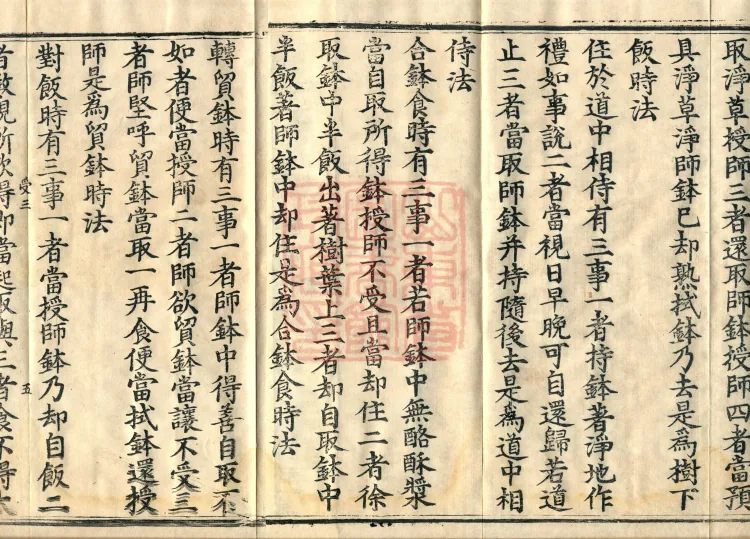 取淨草授師三者還取師鉢授師四者當預
具淨草淨師鉢已却熟拭鉢乃去是爲樹下
飯時法
住於道中相待有三事一者持鉢著淨地作
禮如事說二者當視日早晚可自還歸若道
止三者當取師鉢并持隨後去是爲道中相
待法
合鉢食時有三事一者若師鉢中無酪酥漿
當自取所得鉢授師不受且當却住二者徐
取鉢中半飯出著樹葉上三者却自取鉢中
半飯著師鉢中却住是爲合鉢食時法
轉貿鉢時有三事一者師鉢中得善自取不
如者便當授師二者師欲貿鉢當讓不受三
者師堅呼貿鉢當取一再食便當拭鉢還授
師是爲貿鉢時法
對飯時有三事一者當授師鉢乃却自飯二
受三 五
者數視所欲得即當起取與三者食不得